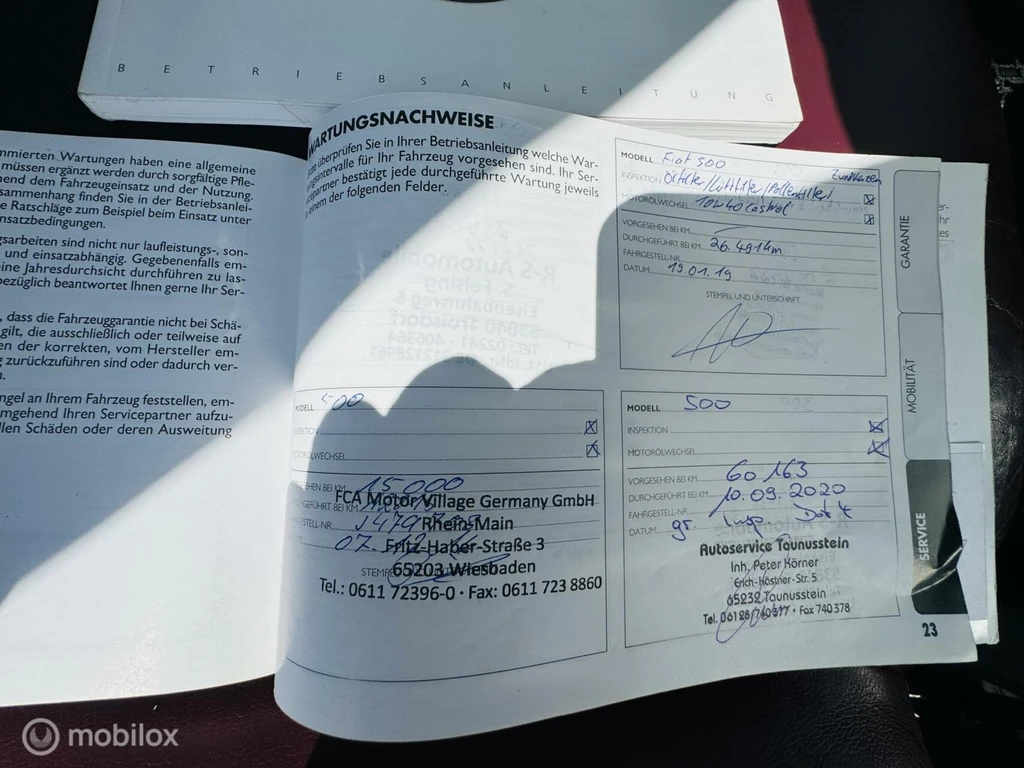 BETRIEBSANLEITUNG
mmierten Wartungen haben eine allgemeine
müssen ergänzt werden durch sorgfältige Pfle-
hend dem Fahrzeugeinsatz und der Nutzung.
sammenhang finden Sie in der Betriebsanlei-
e Ratschläge zum Beispiel beim Einsatz unter
nsatzbedingungen.
gsarbeiten sind nicht nur laufleistungs-, son-
und einsatzabhängig. Gegebenenfalls em-
eine Jahresdurchsicht durchführen zu las-
bezüglich beantwortet Ihnen gerne Ihr Ser-
, dass die Fahrzeuggarantie nicht bei Schä-
gilt, die ausschließlich oder teilweise auf
en der korrekten, vom Hersteller em-
g zurückzuführen sind oder dadurch ver-
n.
ngel an Ihrem Fahrzeug feststellen, em-
mgehend Ihren Servicepartner aufzu-
llen Schäden oder deren Ausweitung
WARTUNGSNACHWEISE
überprüfen Sie in Ihrer Betriebsanleitung welche War-
ungsintervalle für Ihr Fahrzeug vorgesehen sind. Ihr Ser-
icepartner bestätigt jede durchgeführte Wartung jeweils
in einem der folgenden Felder.
MODELL Fiat 500
Zündkerzen
INSPEKTION Ölfilter/Luftfilter/Pollenfilter
MOTORÖLWECHSEL 10W40 Castrol
VORGESEHEN BEI KM
DURCHGEFÜHRT BEI KM 26.491km
FAHRGESTELL-NR.
DATUM 19.01.19
STEMPEL UND UNTERSCHRIFT
MODELL 500
INSPEKTION
MOTORÖLWECHSEL
GESEHEN BEI KM 15.000
CHGEFÜHRT BEI KM
GESTELL-NR.
07.
STEMPE
FCA Motor Village Germany GmbH
Rhein-Main
Fritz-Haber-Straße 3
65203 Wiesbaden
Tel.: 0611 72396-0 · Fax: 0611 723 8860
MODELL 500
INSPEKTION
MOTORÖLWECHSEL
VORGESEHEN BEI KM 60163
DURCHGEFÜHRT BEI KM 10.09.2020
FAHRGESTELL-NR.
DATUM gr. Insp.
Autoservice Taunusstein
Inh. Peter Körner
Erich-Kästner-Str. 5
65232 Taunusstein
Tel. 06128/740377 · Fax 740 378
GARANTIE
MOBILITÄT
SERVICE
23
mobilox